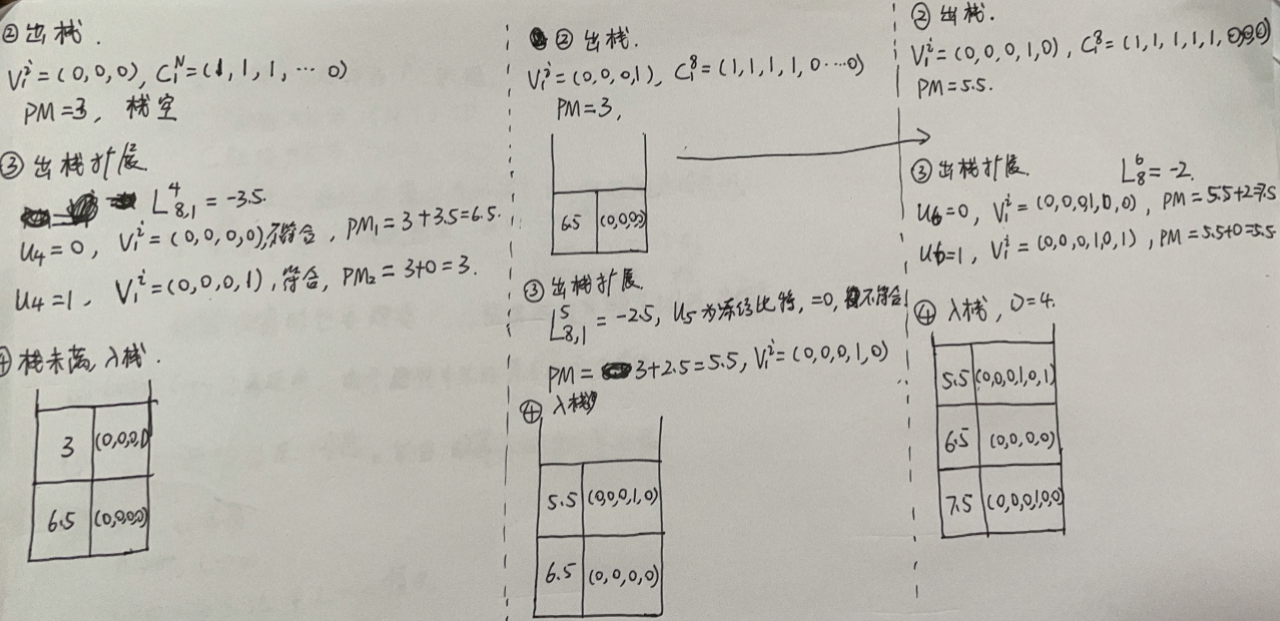 ②出栈.
V₁ⁱ=(0,0,0), C₁ᴺ=(1,1,1,…0)
PM=3, 栈空
③出栈扩展
L⁴₈,₁=-3.5.
U₄=0, V₁ⁱ=(0,0,0,0),不符合, PM₁=3+3.5=6.5.
U₄=1, V₁ⁱ=(0,0,0,1),符合, PM₂=3+0=3.
④栈未满,入栈.
3 (0,0,0,1)
6.5 (0,0,0,0)
②出栈.
V₁ⁱ=(0,0,0,1), C₁⁸=(1,1,1,1,0…0)
PM=3,
6.5 (0,0,0,0)
③出栈扩展.
L⁵₈,₁=-2.5, U₅为冻结比特,=0,不符合
PM=3+2.5=5.5, V₁ⁱ=(0,0,0,1,0)
④入栈
5.5 (0,0,0,1,0)
6.5 (0,0,0,0)
②出栈.
V₁ⁱ=(0,0,0,1,0), C₁⁸=(1,1,1,1,1,0,0,0)
PM=5.5.
③出栈扩展. L₈⁶=-2.
U₆=0, V₁ⁱ=(0,0,0,1,0,0), PM=5.5+2=7.5
U₆=1, V₁ⁱ=(0,0,0,1,0,1), PM=5.5+0=5.5
④入栈, D=4.
5.5 (0,0,0,1,0,1)
6.5 (0,0,0,0)
7.5 (0,0,0,1,0,0)